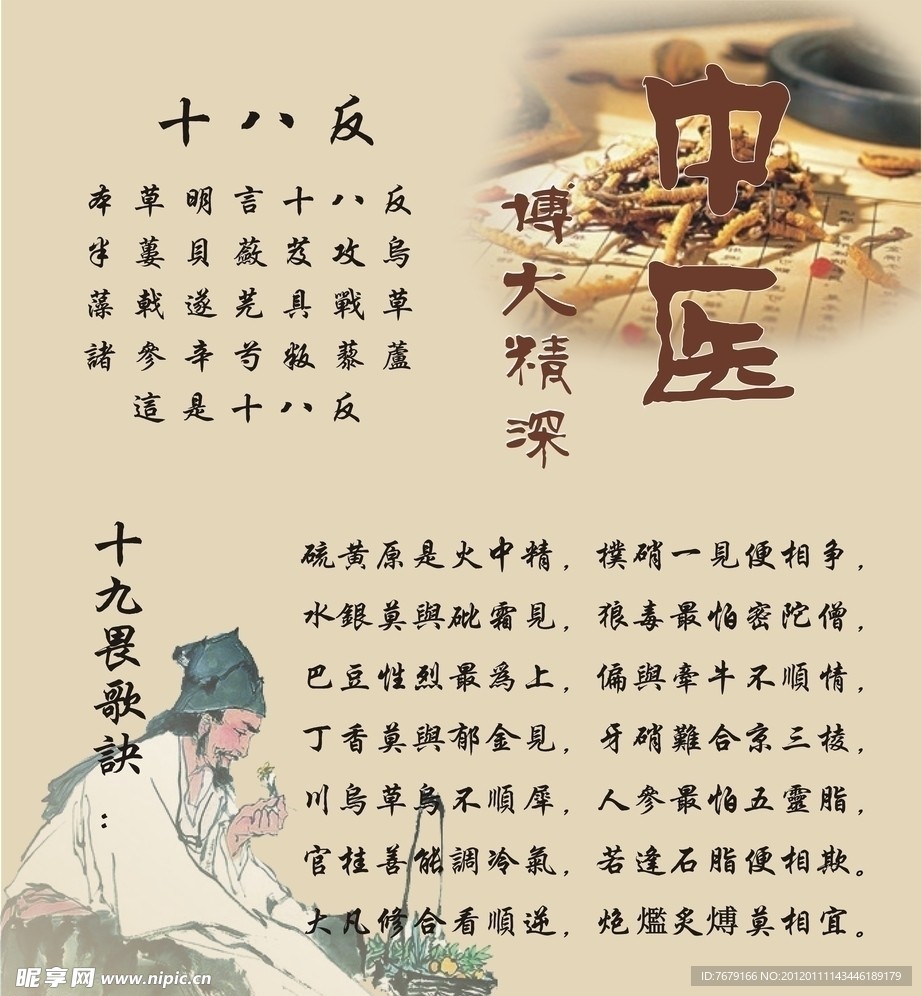 中医
博大精深
十八反
本草明言十八反
半蔞貝蘞芨攻烏
藻戟遂芫具戰草
諸參辛芍叛藜蘆
這是十八反
十九畏歌訣：
硫黄原是火中精，樸硝一見便相争，
水銀莫與砒霜見，狼毒最怕密陀僧，
巴豆性烈最爲上，偏與牽牛不順情，
丁香莫與郁金見，牙硝難合京三棱，
川烏草烏不順犀，人參最怕五靈脂，
官桂善能調冷氣，若逢石脂便相欺。
大凡修合看順逆，炮爁炙煿莫相宜。
昵享网 www.nipic.cn
ID:7679166 NO:20120111143446189179